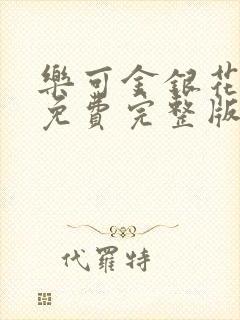 樂可金銀花
免費完整版
代羅特